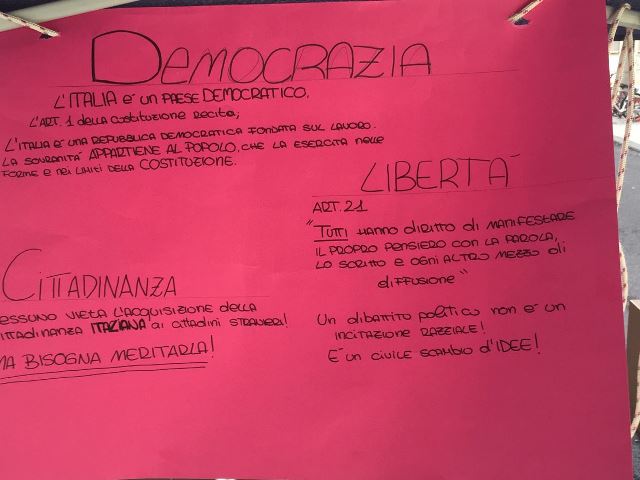 DEMOCRAZIA
L'ITALIA è UN PAESE DEMOCRATICO.
L'ART. 1 della costituzione recita;
L'ITALIA È UNA REPUBBLICA DEMOCRATICA FONDATA SUL LAVORO.
LA SOVRANITÀ APPARTIENE AL POPOLO, CHE LA ESERCITA NELLE
FORME E NEI LIMITI DELLA COSTITUZIONE.
LIBERTÀ
ART. 21
"TUTTI HANNO DIRITTO DI MANIFESTARE
IL PROPRO PENSIERO CON LA PAROLA,
LO SCRITTO E OGNI ALTRO MEZZO DI
DIFFUSIONE"
UN DIBATTITO POLITICO NON È UN
INCITAZIONE RAZZIALE!
È UN CIVILE SCAMBIO D'IDEE!
CITTADINANZA
ESSUNO VIETA L'ACQUISIZIONE DELLA
ITTADINANZA ITALIANA AI CITTADINI STRANIERI!
MA BISOGNA MERITARLA!